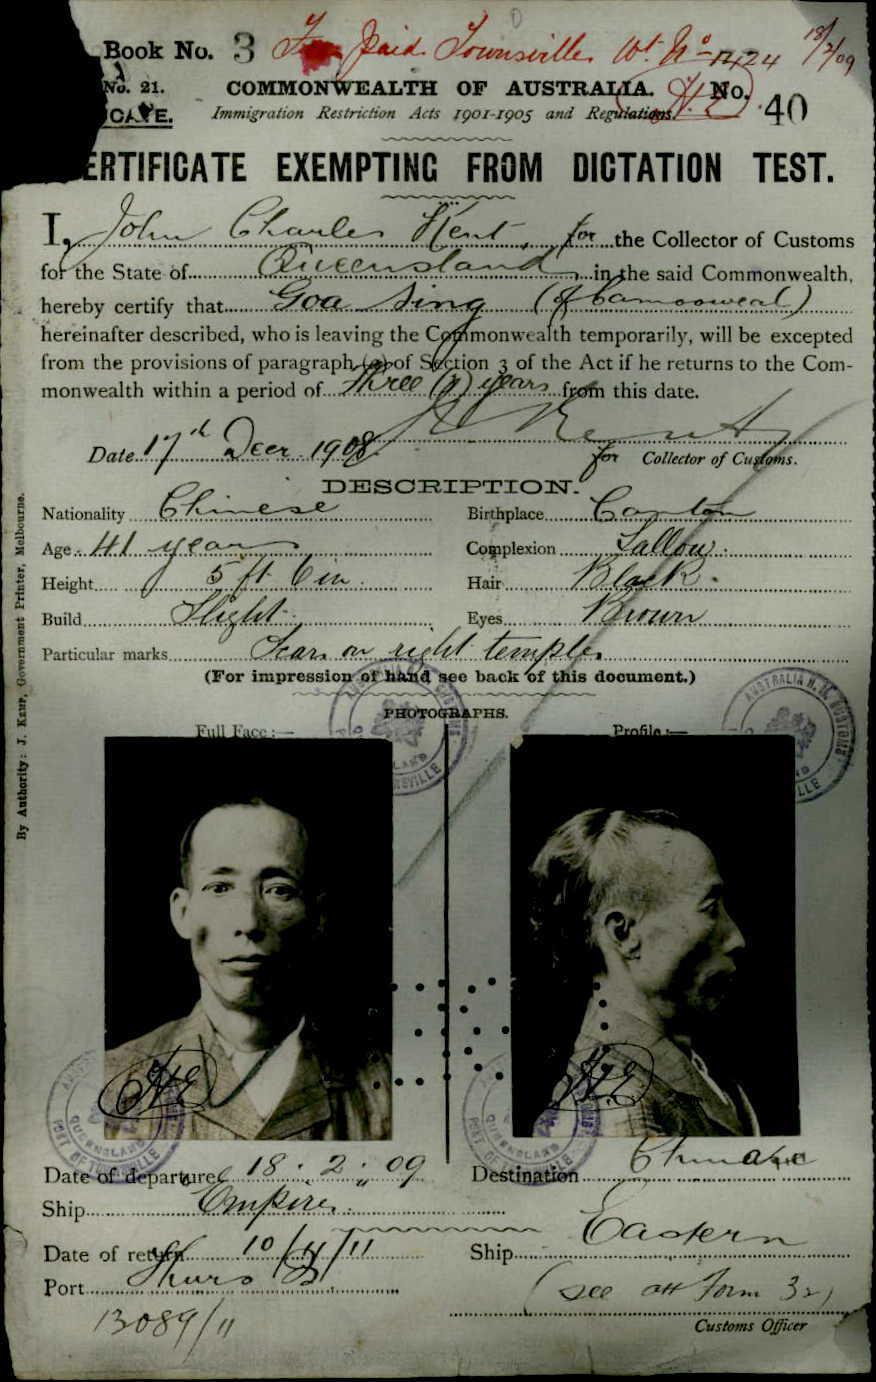 Book No. 3 Fee paid Townsville Wt. No 18/2/09
No. 21. COMMONWEALTH OF AUSTRALIA. No. 40
Immigration Restriction Acts 1901-1905 and Regulations. H.E
ERTIFICATE EXEMPTING FROM DICTATION TEST.
I, John Charles Kent, for the Collector of Customs
for the State of Queensland in the said Commonwealth,
hereby certify that Goa Sing (of Camooweal)
hereinafter described, who is leaving the Commonwealth temporarily, will be excepted
from the provisions of paragraph (a) of Section 3 of the Act if he returns to the Com-
monwealth within a period of three (3) years from this date.
Date 17th Decr. 1908 Kent
for Collector of Customs.
DESCRIPTION.
Nationality Chinese Birthplace Canton
Age 41 years Complexion Sallow.
Height 5 ft 6 in. Hair Black.
Build Slight. Eyes Brown
Particular marks Scar on right temple.
(For impression of hand see back of this document.)
PHOTOGRAPHS.
Full Face:— Profile:—
AUSTRALIA H.M. CUSTOMS
H.E H.E
QUEENSLAND
PORT OF TOWNSVILLE
Date of departure 18. 2. 09 Destination China
Ship Empire.
Date of return 10/4/11 Ship Eastern
Port Thurs Is (see att Form 32)
13089/11 Customs Officer
By Authority: J. Kemp, Government Printer, Melbourne.